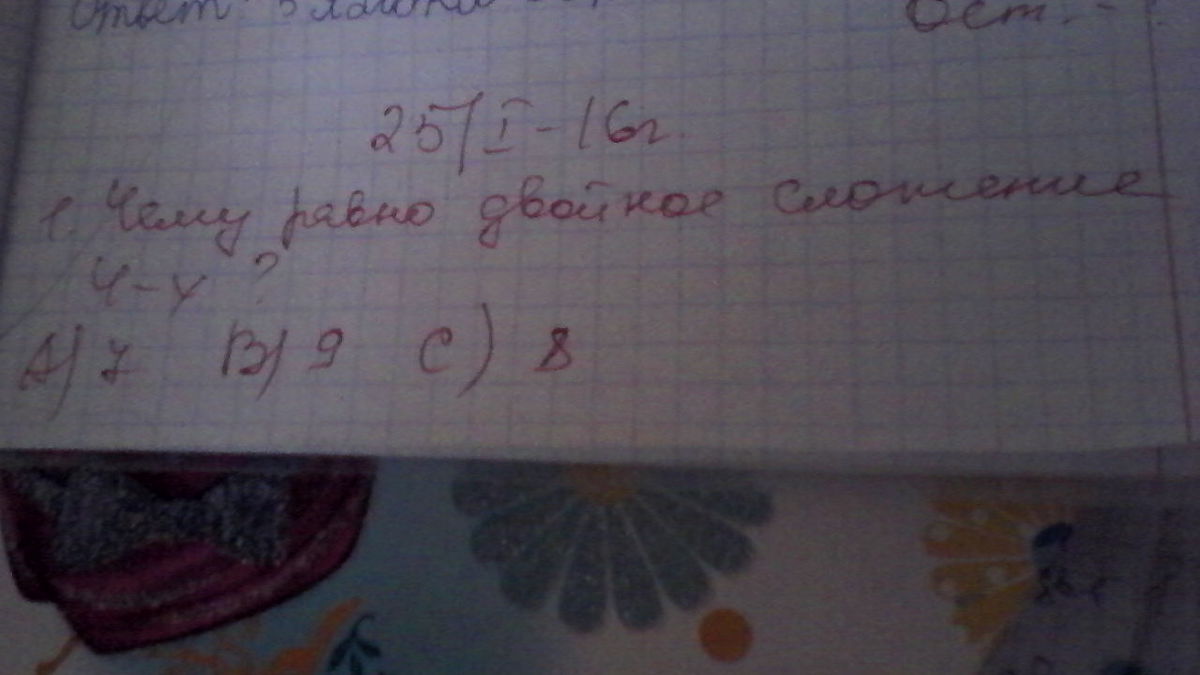 Ответ: 3
Ост. -
25/I-16г.
1. Чему равно двойное сложение
4-х ?
А) 7 В) 9 С) 8